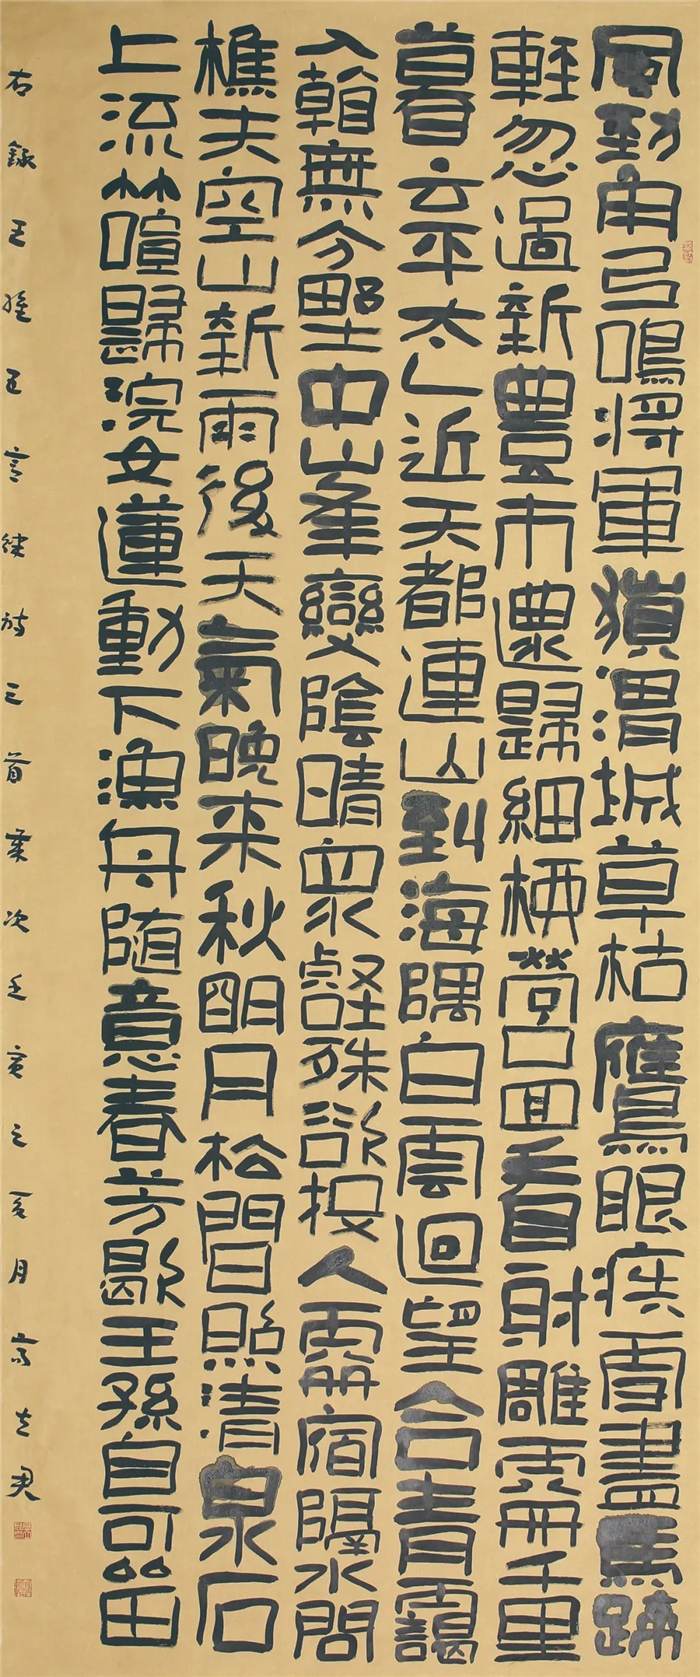 風勁角弓鳴將軍獵渭城草枯鷹眼疾雪盡馬蹄
輕忽過新豐市還歸細柳營回看射雕處千里
暮云平太乙近天都連山到海隅白雲迴望合青靄
入看無分壄中峯變陰晴衆壑殊欲投人處宿隔水問
樵夫空山新雨後天氣晚來秋明月松間照清泉石
上流竹喧歸浣女蓮動下漁舟隨意春芳歇王孫自可留
右録王維五言律詩三首歲次壬寅之亥月